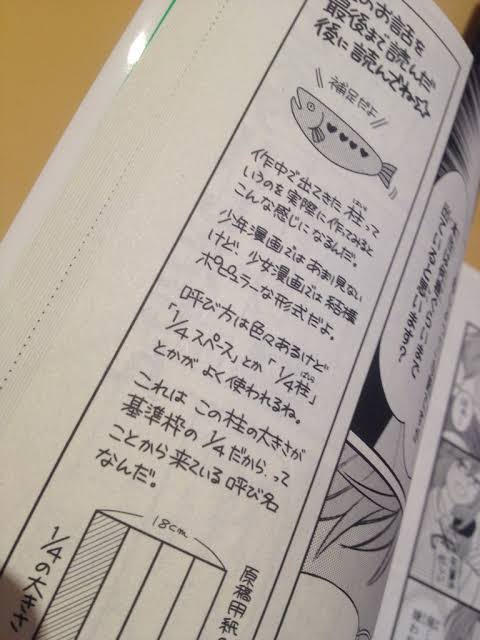 のお話を
最後まで読んだ
後に読んでね☆
補足だよ
作中で出てきた 柱って
はしら
いうのを実際に作ってみると
こんな感じになるんだ。
少年漫画ではあまり見ない
けど、少女漫画では結構
ポピュラーな形式だよ。
呼び方は色々あるけど
「1/4スペース」とか「1/4柱」
はしら
とかが よく使われるね。
これは この柱の大きさが
基準枠の 1/4だから って
ことから来ている呼び名
なんだ。
18cm
1/4の大きさ
原稿用紙の